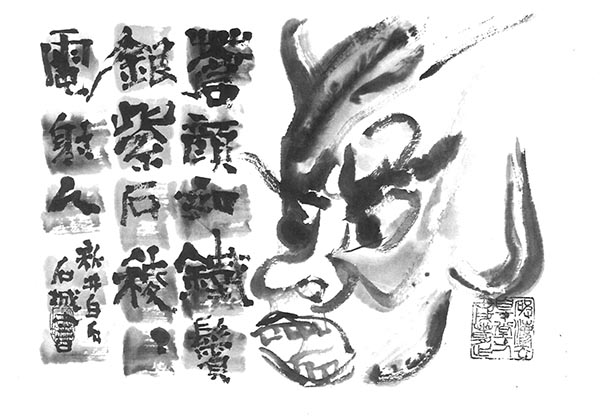 蒼顔如鐵鬢
銀紫石稜〻
電射人
新井白石
石城書